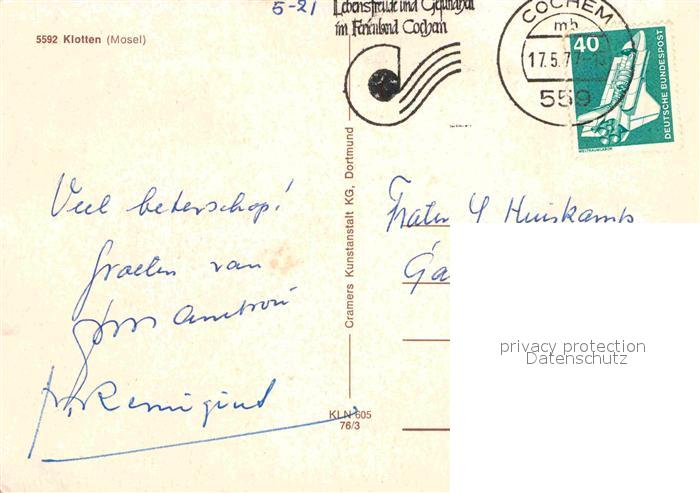 5-21
5592 Klotten (Mosel)
Lebensfreude und Gesundheit
im Ferienland Cochem
COCHEM
mb
17.5.77
559
40
DEUTSCHE BUNDESPOST
WELTRAUMLABOR
Cramers Kunstanstalt KG, Dortmund
Veel beterschap!
Groeten van
fr. Remigius
Frater Huiskamp
KLN 605
76/3
privacy protection
Datenschutz